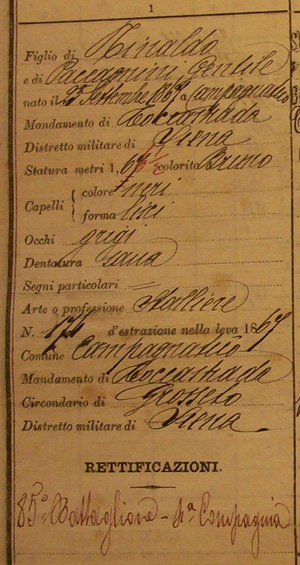 1
Figlio di Rinaldo
e di Paccagnini Gentile
nato il 2 Settembre 1869 a Campagnatico
Mandamento di Roccastrada
Distretto militare di Siena
Statura metri 1, colorito Bruno
Capelli { colore neri
forma lisci
Occhi grigi
Dentatura Sana
Segni particolari =
Arte o professione Stalliere
N. 174 d'estrazione nella leva 1869
Comune Campagnatico
Mandamento di Roccastrada
Circondario di Grosseto
Distretto militare di Siena
RETTIFICAZIONI.
85° Battaglione - 4ª Compagnia